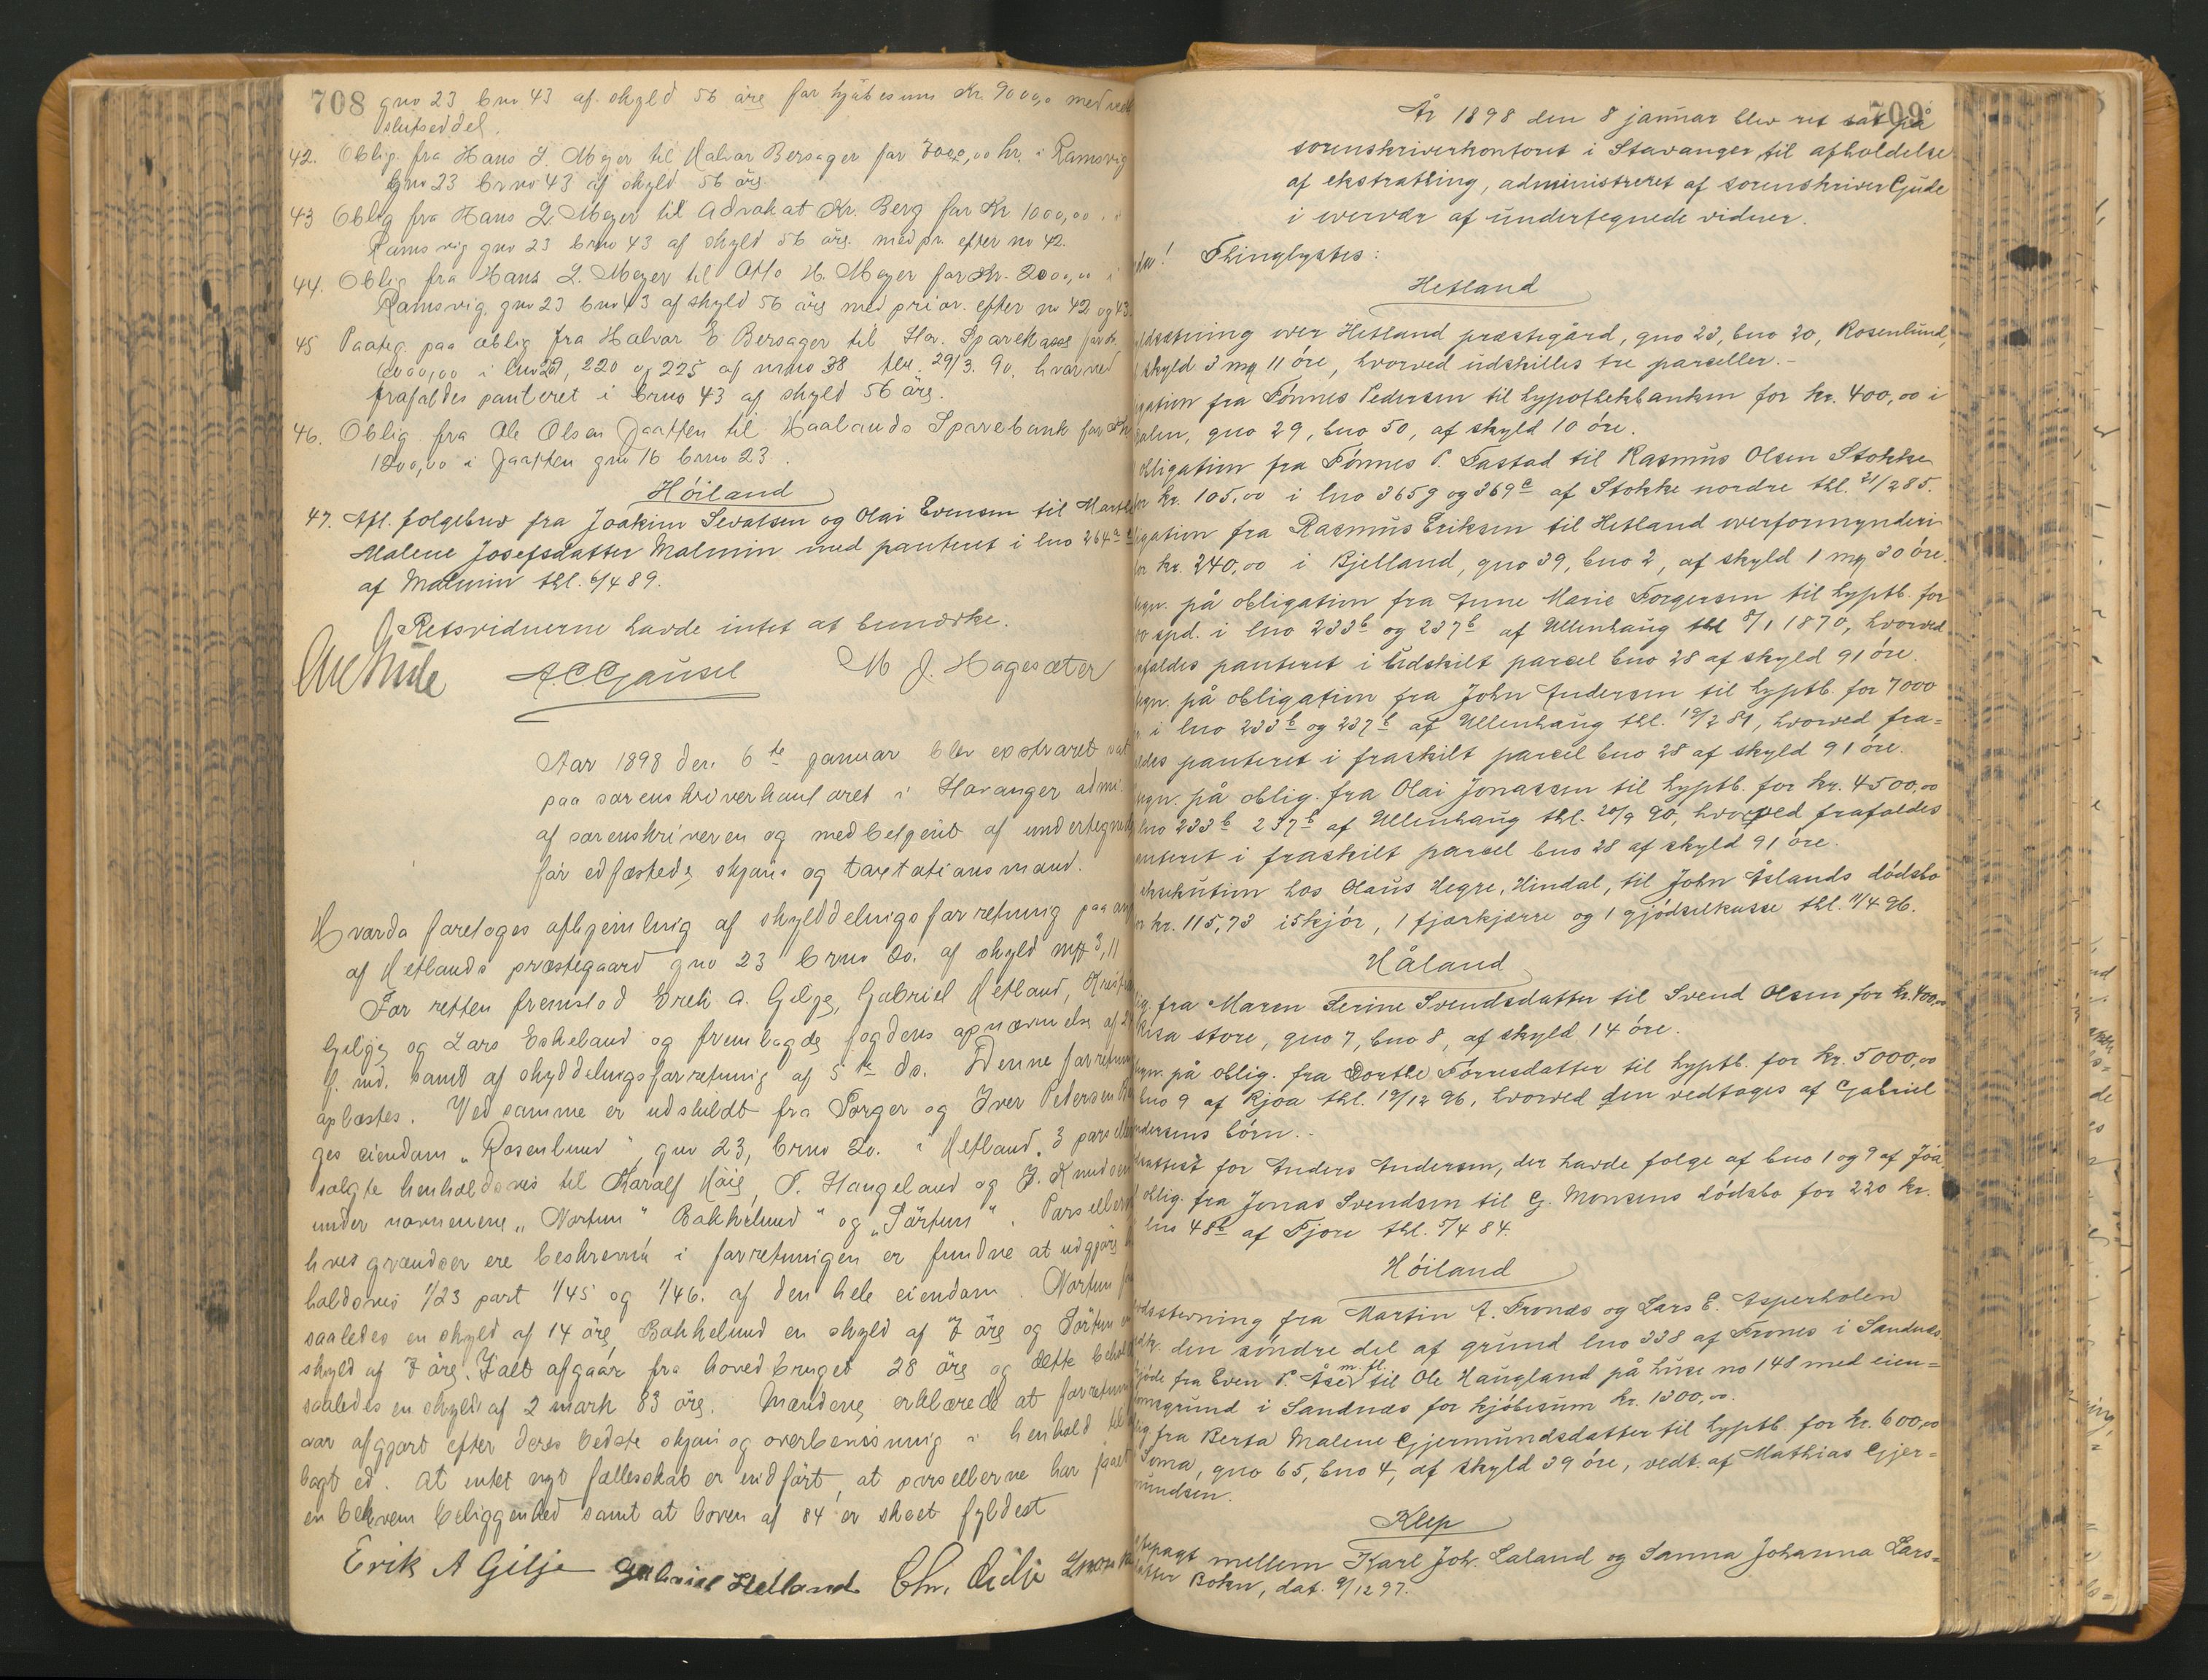 708 gno 23 bno 43 af skyld 56 øre for kjøbesum Kr. 9000,00 med
slutseddel.
42. Oblig. fra Hans L. Meyer til Halvor Bersager for 7000,00 kr. i Ramsvig
gno 23 brno 43 af skyld 56 øre
43 Oblig fra Hans L. Meyer til Advokat Kr. Berg for Kr 1000,00
Ramsvig gno 23 brno 43 af skyld 56 øre. med pr. efter no 42.
44. Oblig fra Hans L. Meyer til Otto H. Meyer for Kr. 2000,00 i
Ramsvig. gno 23 bno 43 af skyld 56 øre med prior. efter no 42 og 43.
45 Paateg. paa oblig fra Halvor E Bersager til Stav. Sparekasse for
6000,00 i 220 og 225 af 38 29/3. 90. hvorved
frafaldes panteret i brno 43 af skyld 56 øre.
46. Oblig. fra Ole Olsen Jaatten til Haalands Sparebank for
1800,00 i Jaatten gno 16 brno 23.
Höiland
47. Afl. folgebrev fra Joakim Sevatsen og Olai Evensen til Marthe
Malene Josefsdatter Malmin med panteret i lno 264a
af Malmin thl. 6/4 89.
Retsvidnerne havde intet at bemærke.
A.C. Gausel M J. Hagesæter
Aar 1898 den 6te januar blev ekstraret sat
paa sorenskriverkontoret i Stavanger admi.
af sorenskriveren og med betjent af undertegnede
for edfæstede skjøns og taxtationsmænd.
Hvorda foretoges afhjemling af skylddelingsforretning paa
af Hetlands præstegaard gno 23 brno 20. af skyld mk 3,11
For retten fremstod Erik A. Gilje, Gabriel Hetland,
Gilje og Lars Eskeland og fremlagde fogdens opnævnelse af
f. md. samt af skylddelingsforretning af 5te ds. Denne forretning
oplæstes. Ved samme er udskildt fra Torger og Iver Petersen
ges eiendom „Rosenlund“, gno 23, brno 20. i Hetland, 3 parseller
solgte henholdsvis til Karalf Høie, T. Haugeland og J. Knudsen
under navnene „Nortun“ Bakkelund“ og „Sörtun“. Parsellerne
hves grændser ere beskrevne i forretningen er fundne at udgjøre
holdsvis 1/23 part 1/45 og 1/46. af den hele eiendom. Nortun
saaledes en skyld af 14 øre, Bakkelund en skyld af 7 øre og Sörtun en
skyld af 7 øre. Ialt afgaar fra hovedbruget 28 øre og dette
saaledes en skyld af 2 mark 83 øre. Mændene erklærede at forretningen
var afgjort efter deres bedste skjøn og overbevisning i henhold til
lagt ed. At intet nyt fællesskab er indført, at parsellerne har faaet
en bekvem beliggenhed samt at loven af 84 er skeet fyldest
Erik A Gilje Gabriel Hetland Chr. Gilje
709
År 1898 den 8 januar blev ret sat på
sorenskriverkontoret i Stavanger til afholdelse
af ekstrathing, administreret af sorenskriver Gjude
i overvær af undertegnede vidner.
Thinglystes:
Hetland
over Hetland præstegård, gno 23, bno 20, Rosenlund,
skyld 3 mq 11 öre, hvorved udskilles tre parceller.-
gation fra Tönnes Pedersen til hypothekbanken for kr. 400,00 i
gno 29, bno 50, af skyld 10 öre.
obligation fra Tönnes P. Tastad til Rasmus Olsen Stokke
kr. 105,00 i lno 365g og 369c af Stokke nordre thl. 21/2 85.
gation fra Rasmus Eriksen til Hetland overformynderi
kr. 240,00 i Bjelland, gno 39, bno 2, af skyld 1 mq 30 öre.
på obligation fra Anne Marie Torgersen til hyptb. for
spd. i lno 233b og 237b af Ullenhaug thl 8/1 1870, hvorved
faldes panteret i udskilt parcel bno 28 af skyld 91 öre.
på obligation fra John Andersen til hyptb. for 7000
i lno 233b og 237b af Ullenhaug thl. 19/2 81, hvorved fra=
ldes panteret i fraskilt parcel bno 28 af skyld 91 öre.
på oblig. fra Olai Jonassen til hyptb. for kr. 4500,00
lno 233b 237b af Ullenhaug thl. 20/9 90, hvorved frafaldes
anteret i fraskilt parcel bno 28 af skyld 91 öre.
eksekution hos Olaus Hegre, Hindal, til John Åslands dödsbo
kr. 115,73 i 5 kjör, 1 fjærkjærre og 1 gjödselkasse thl. 11/4 96.
Håland
fra Maren Serine Svendsdatter til Svend Olsen for kr. 400,00
store, gno 7, bno 8, af skyld 14 öre.
på oblig. fra Dorthe Torresdatter til hyptb. for kr. 5000,00
bno 9 af Kjoa thl. 19/12 96, hvorved den vedtages af Gabriel
ndersens börn.-
for Anders Andersen, der havde folge af bno 1 og 9 af Jöa.
oblig. fra Jonas Svendsen til G. Monsens dödsbo for 220 kr.
lno 48b af Tjore thl. 5/4 84.
Höiland
fra Martin A. Trones og Lars E. Asperholen
den söndre del af grund lno 338 af Trones i Sandnæs
kjöde fra Even P. Åse m. fl. til Ole Haugland på huse no 148 med eien=
omsgrund i Sandnæs for kjöbesum kr. 1300,00.
fra Berta Malene Gjermundsdatter til hyptb. for kr. 600,00
Soma, gno 65, bno 4, af skyld 39 öre, vedt. af Mathias Gjer=
mundsen.
Klep
mellem Karl Joh. Laland og Sanna Johanna Lars=
datter Bokn, dat. 9/12 97.